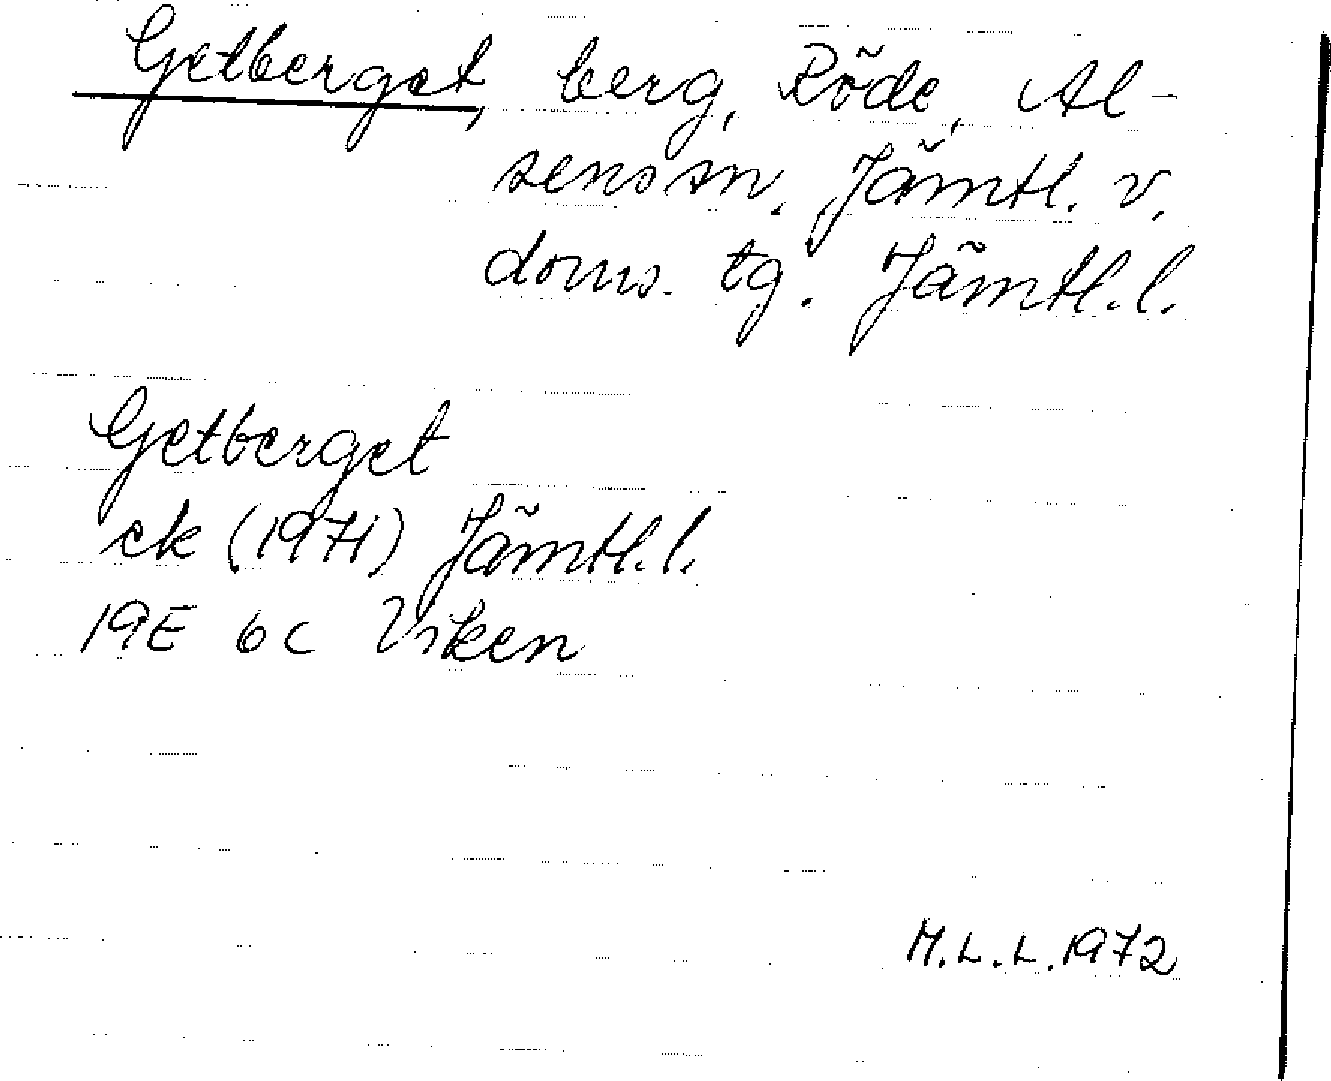 Getberget, berg, Röde, Al-
sens sn, Jämtl. v.
doms. tg. Jämtl. l.
Getberget
ek (1971) Jämtl. l.
19E 6c Viken
M.L.L. 1972